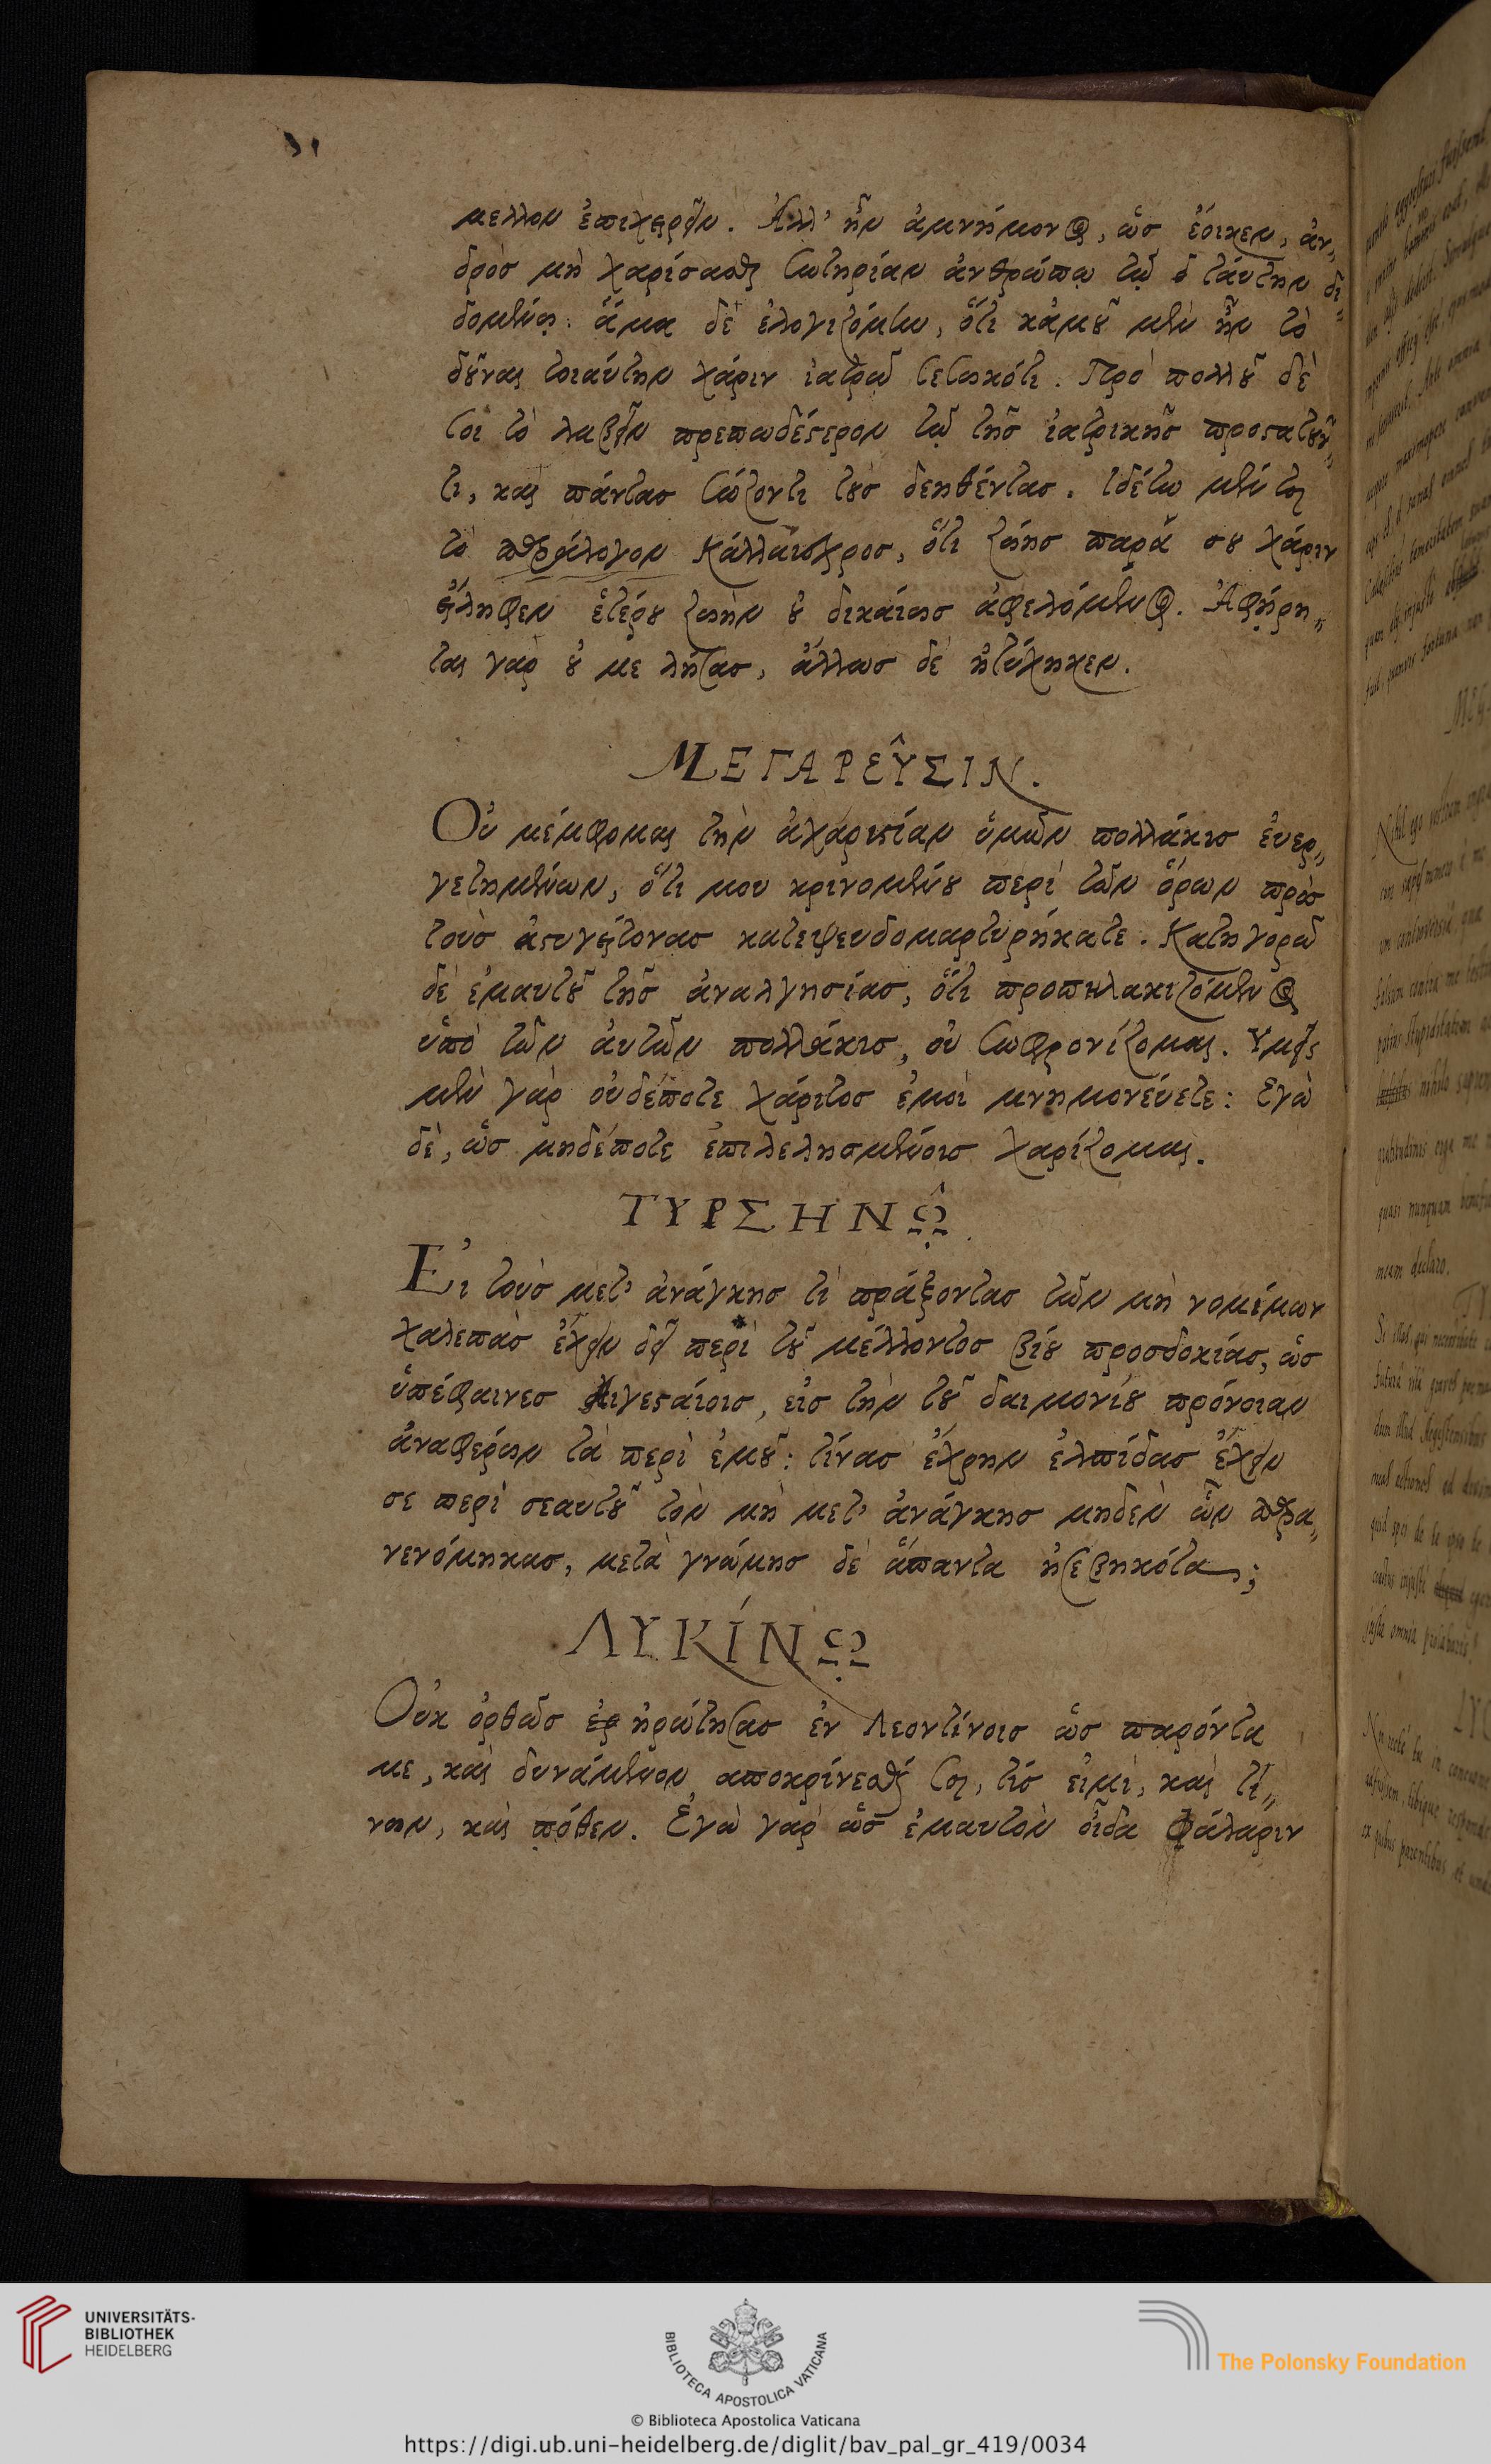 μελλον ἐπιχειρεῖν. Ἀλλ' ἦν ἀμνήμονος, ὡς ἔοικεν, ἀν„
δρὸς μὴ χαρίσασθαι σωτηρίαν ἀνθρώπῳ τῷ ὁ ταύτην δι„
δομένῳ: ἅμα δὲ ἐλογιζόμην, ὅτι κἀμοῦ μὲν ἦν τὸ
δοῦναι τοιαύτην χάριν ἰατρῷ σεσωκότι. Πρὸ πολλοῦ δέ
σοι τὸ λαβεῖν πρεπωδέστερον τῷ τῆς ἰατρικῆς προστατοῦν„
τι, καὶ πάντας σώζοντι τοὺς δεηθέντας. ἰδέτω μέν τοι
τὸ παράλογον Κάλλαισχρος, ὅτι ζωῆς παρά σου χάριν
εἴληφεν ἑτέρου ζωὴν οὐ δικαίως ἀφελόμενος. Ἀφῄρη„
ται γὰρ οὔ με λῄσας, ἄλλως δὲ ἠτύχηκεν.
ΜΕΓΑΡΕῦΣΙΝ.
Οὐ μέμφομαι τὴν ἀχαριστίαν ὑμῶν πολλάκις εὐερ„
γετημένων, ὅτι μου κρινομένου περὶ τῶν ὅρων πρὸς
τοὺς ἀστυγείτονας κατεψευδομαρτυρήκατε. Κατηγορῶ
δὲ ἐμαυτοῦ τῆς ἀναλγησίας, ὅτι προπηλακιζόμενος
ὑπὸ τῶν ἀυτῶν πολλάκις, οὐ σωφρονίζομαι. Υμεῖς
μὲν γὰρ οὐδέποτε χάριτος ἐμοὶ μνημονέυετε: Εγὼ
δὲ, ὡς μηδέποτε ἐπιλελησμένοις χαρίζομαι.
ΤΥΡΣΗΝῶ.
Εἰ τοὺς μετ' ἀνάγκης τὶ πράξοντας τῶν μὴ νομίμων
χαλεπὰς ἔχειν δεῖ περὶ τοῦ μέλλοντος βίου προσδοκίας, ὡς
ὑπέφαινες Αἰγεσαίοις, εἰς τὴν τοῦ δαιμονίου πρόνοιαν
ἀναφέρων τὰ περὶ ἐμοῦ: τίνας ἐχρῆν ἐλπίδας ἔχειν
σε περὶ σεαυτοῦ τὸν μὴ μετ' ἀνάγκης μηδὲν ὧν παρα„
νενόμηκας, μετὰ γνώμης δὲ ἅπαντα ἠσεβηκότα;
ΛΥΚΊΝῼ
Οὐκ ὀρθῶς ἠρώτησας ἐν Λεοντίνοις ὡς παρόντα
με, καὶ δυνάμενον αποκρίνεσθαί σοι, τίς εἰμὶ, καὶ τί„
νων, καὶ πόθεν. Εγὼ γὰρ ὡς ἐμαυτὸν οἶδα Φάλαριν
UNIVERSITÄTS-
BIBLIOTHEK
HEIDELBERG
BIBLIOTECA APOSTOLICA VATICANA
The Polonsky Foundation
© Biblioteca Apostolica Vaticana
https://digi.ub.uni-heidelberg.de/diglit/bav_pal_gr_419/0034